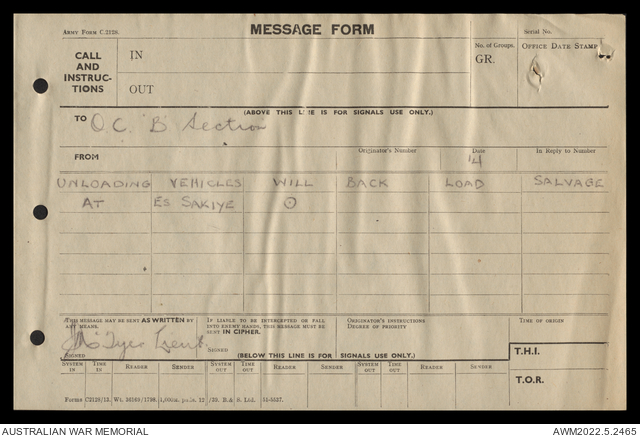 ARMY FORM C.2128.
MESSAGE FORM
Serial No.
CALL AND INSTRUC-TIONS
IN
OUT
No. of Groups.
GR.
OFFICE DATE STAMP
(ABOVE THIS LINE IS FOR SIGNALS USE ONLY.)
TO O.C. "B" Section
FROM
Originator's Number
Date
14
In Reply to Number
UNLOADING VEHICLES WILL BACK LOAD SALVAGE
AT ES SAKIYE
THIS MESSAGE MAY BE SENT AS WRITTEN BY ANY MEANS.
IF LIABLE TO BE INTERCEPTED OR FALL INTO ENEMY HANDS, THIS MESSAGE MUST BE SENT IN CIPHER.
ORIGINATOR'S INSTRUCTIONS
DEGREE OF PRIORITY
TIME OF ORIGIN
Lieut.
SIGNED
SIGNED
(BELOW THIS LINE IS FOR SIGNALS USE ONLY.)
T.H.I.
SYSTEM IN TIME IN READER SENDER SYSTEM OUT TIME OUT READER SENDER SYSTEM OUT TIME OUT READER SENDER
T.O.R.
AUSTRALIAN WAR MEMORIAL
AWM2022.5.2465